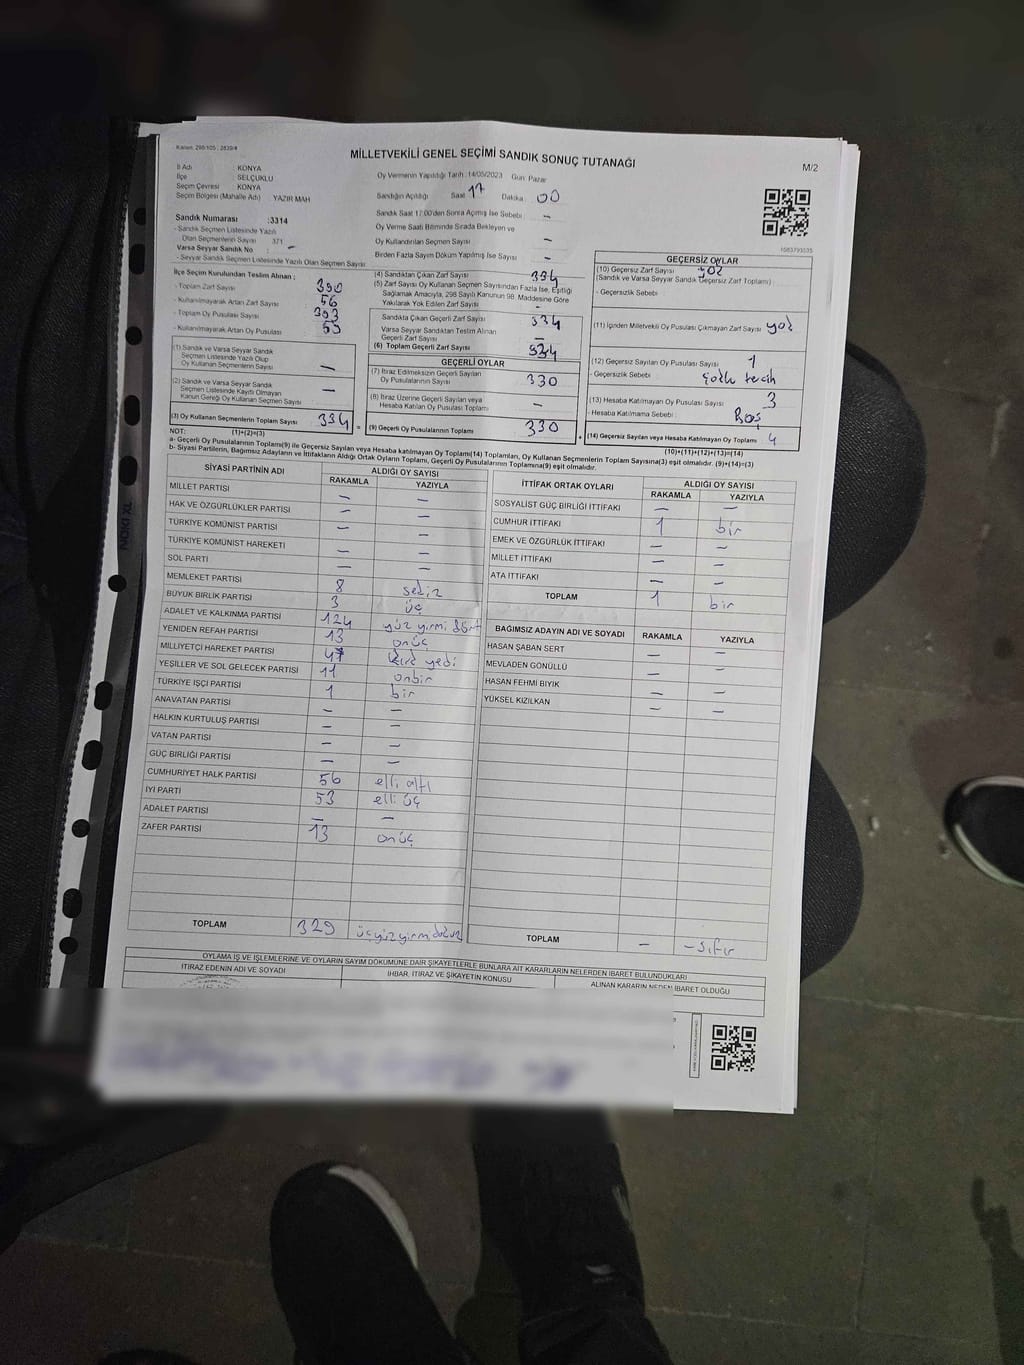 Kanun: 298/105 ; 2839/4
MİLLETVEKİLİ GENEL SEÇİMİ SANDIK SONUÇ TUTANAĞI
M/2
İl Adı : KONYA
İlçe : SELÇUKLU
Seçim Çevresi : KONYA
Seçim Bölgesi (Mahalle Adı) YAZIR MAH
Sandık Numarası :3314
- Sandık Seçmen Listesinde Yazılı
Olan Seçmenlerin Sayısı 371
Varsa Seyyar Sandık No : -
- Seyyar Sandık Seçmen Listesinde Yazılı Olan Seçmen Sayısı
Oy Vermenin Yapıldığı Tarih : 14/05/2023 Gün: Pazar
Sandığın Açılışı Saat 17 Dakika 00
Sandık Saat 17.00'den Sonra Açılmış İse Sebebi : -
Oy Verme Saati Bitiminde Sırada Bekleyen ve
Oy Kullandırılan Seçmen Sayısı -
Birden Fazla Sayım Döküm Yapılmış İse Sayısı -
İlçe Seçim Kurulundan Teslim Alınan :
- Toplam Zarf Sayısı 390
- Kullanılmayarak Artan Zarf Sayısı 56
- Toplam Oy Pusulası Sayısı 393
- Kullanılmayarak Artan Oy Pusulası 59
(1) Sandık ve Varsa Seyyar Sandık
Seçmen Listesinde Yazılı Olup
Oy Kullanan Seçmenlerin Sayısı -
(2) Sandık ve Varsa Seyyar Sandık
Seçmen Listesinde Kayıtlı Olmayan
Kanun Gereği Oy Kullanan Seçmen Sayısı -
(3) Oy Kullanan Seçmenlerin Toplam Sayısı 334
(4) Sandıktan Çıkan Zarf Sayısı 334
(5) Zarf Sayısı Oy Kullanan Seçmen Sayısından Fazla İse, Eşitliği
Sağlamak Amacıyla, 298 Sayılı Kanunun 98. Maddesine Göre
Yakılarak Yok Edilen Zarf Sayısı -
Sandıkta Çıkan Geçerli Zarf Sayısı 334
Varsa Seyyar Sandıktan Teslim Alınan
Geçerli Zarf Sayısı -
(6) Toplam Geçerli Zarf Sayısı 334
GEÇERLİ OYLAR
(7) İtiraz Edilmeksizin Geçerli Sayılan
Oy Pusulasının Sayısı 330
(8) İtiraz Üzerine Geçerli Sayılan veya
Hesaba Katılan Oy Pusulası Toplamı -
(9) Geçerli Oy Pusulalarının Toplamı 330
1083793535
GEÇERSİZ OYLAR
(10) Geçersiz Zarf Sayısı yok
(Sandık ve Varsa Seyyar Sandık Geçersiz Zarf Toplamı) :
- Geçersizlik Sebebi :
(11) İçinden Milletvekili Oy Pusulası Çıkmayan Zarf Sayısı yok
(12) Geçersiz Sayılan Oy Pusulası Sayısı 1
- Geçersizlik Sebebi : çoklu tercih
(13) Hesaba Katılmayan Oy Pusulası Sayısı 3
- Hesaba Katılmama Sebebi : Boş
(14) Geçersiz Sayılan veya Hesaba Katılmayan Oy Toplamı 4
NOT: (1)+(2)=(3) (10)+(11)+(12)+(13)=(14)
a- Geçerli Oy Pusulalarının Toplamı(9) ile Geçersiz Sayılan veya Hesaba katılmayan Oy Toplamı(14) Toplamları, Oy Kullanan Seçmenlerin Toplam Sayısına(3) eşit olmalıdır. (9)+(14)=(3)
b- Siyasi Partilerin, Bağımsız Adayların ve İttifakların Aldığı Ortak Oyların Toplamı, Geçerli Oy Pusulalarının Toplamına(9) eşit olmalıdır.
SİYASİ PARTİNİN ADI ALDIĞI OY SAYISI
RAKAMLA YAZIYLA
MİLLET PARTİSİ - -
HAK VE ÖZGÜRLÜKLER PARTİSİ - -
TÜRKİYE KOMÜNİST PARTİSİ - -
TÜRKİYE KOMÜNİST HAREKETİ - -
SOL PARTİ - -
MEMLEKET PARTİSİ 8 sekiz
BÜYÜK BİRLİK PARTİSİ 3 üç
ADALET VE KALKINMA PARTİSİ 124 yüz yirmi dört
YENİDEN REFAH PARTİSİ 13 onüç
MİLLİYETÇİ HAREKET PARTİSİ 47 kırk yedi
YEŞİLLER VE SOL GELECEK PARTİSİ 11 onbir
TÜRKİYE İŞÇİ PARTİSİ 1 bir
ANAVATAN PARTİSİ - -
HALKIN KURTULUŞ PARTİSİ - -
VATAN PARTİSİ - -
GÜÇ BİRLİĞİ PARTİSİ - -
CUMHURİYET HALK PARTİSİ 56 elli altı
İYİ PARTİ 53 elli üç
ADALET PARTİSİ - -
ZAFER PARTİSİ 13 onüç
TOPLAM 329 üçyüzyirmidokuz
İTTİFAK ORTAK OYLARI ALDIĞI OY SAYISI
RAKAMLA YAZIYLA
SOSYALİST GÜÇ BİRLİĞİ İTTİFAKI - -
CUMHUR İTTİFAKI 1 bir
EMEK VE ÖZGÜRLÜK İTTİFAKI - -
MİLLET İTTİFAKI - -
ATA İTTİFAKI - -
TOPLAM 1 bir
BAĞIMSIZ ADAYIN ADI VE SOYADI RAKAMLA YAZIYLA
HASAN ŞABAN SERT - -
MEVLADEN GÖNÜLLÜ - -
HASAN FEHMİ BIYIK - -
YÜKSEL KIZILKAN - -
TOPLAM - -sıfır
OYLAMA İŞ VE İŞLEMLERİNE VE OYLARIN SAYIM DÖKÜMÜNE DAİR ŞİKAYETLERLE BUNLARA AİT KARARLARIN NELERDEN İBARET BULUNDUKLARI
İTİRAZ EDENİN ADI VE SOYADI İHBAR, İTİRAZ VE ŞİKAYETİN KONUSU ALINAN KARARIN NEDEN İBARET OLDUĞU